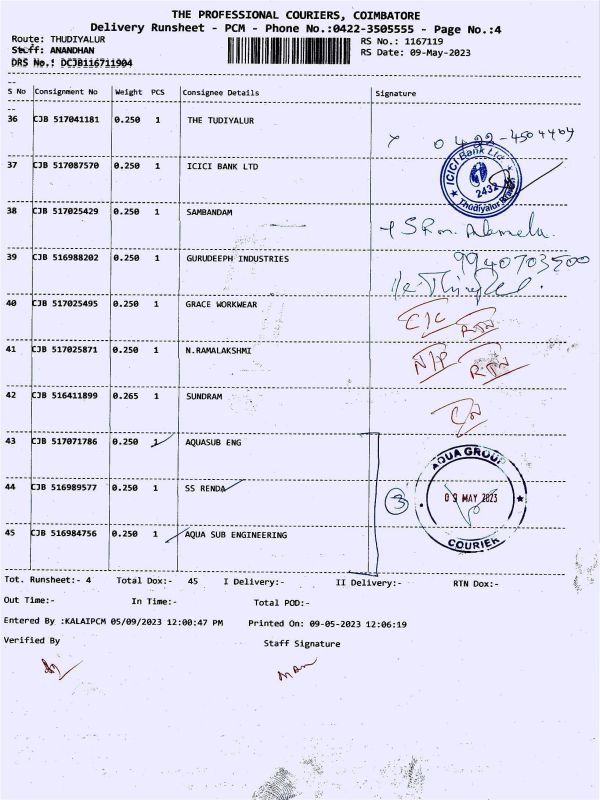 THE PROFESSIONAL COURIERS, COIMBATORE
Delivery Runsheet - PCM - Phone No.:0422-3505555 - Page No.:4
Route: THUDIYALUR RS No.: 1167119
Staff: ANANDHAN RS Date: 09-May-2023
DRS No.: DCJB116711904
S No Consignment No Weight PCS Consignee Details Signature
36 CJB 517041181 0.250 1 THE TUDIYALUR
0422-4504464
37 CJB 517087570 0.250 1 ICICI BANK LTD
ICICI Bank Ltd
2432
Thudiyalur
38 CJB 517025429 0.250 1 SAMBANDAM
39 CJB 516988202 0.250 1 GURUDEEPH INDUSTRIES
9940703500
40 CJB 517025495 0.250 1 GRACE WORKWEAR
C/C RTN
41 CJB 517025871 0.250 1 N.RAMALAKSHMI
N/P RTN
42 CJB 516411899 0.265 1 SUNDRAM
43 CJB 517071786 0.250 1 AQUASUB ENG
AQUA GROUP
44 CJB 516989577 0.250 1 SS RENDA
3 09 MAY 2023
45 CJB 516984756 0.250 1 AQUA SUB ENGINEERING
COURIER
Tot. Runsheet:- 4 Total Dox:- 45 I Delivery:- II Delivery:- RTN Dox:-
Out Time:- In Time:- Total POD:-
Entered By :KALAIPCM 05/09/2023 12:00:47 PM Printed On: 09-05-2023 12:06:19
Verified By Staff Signature